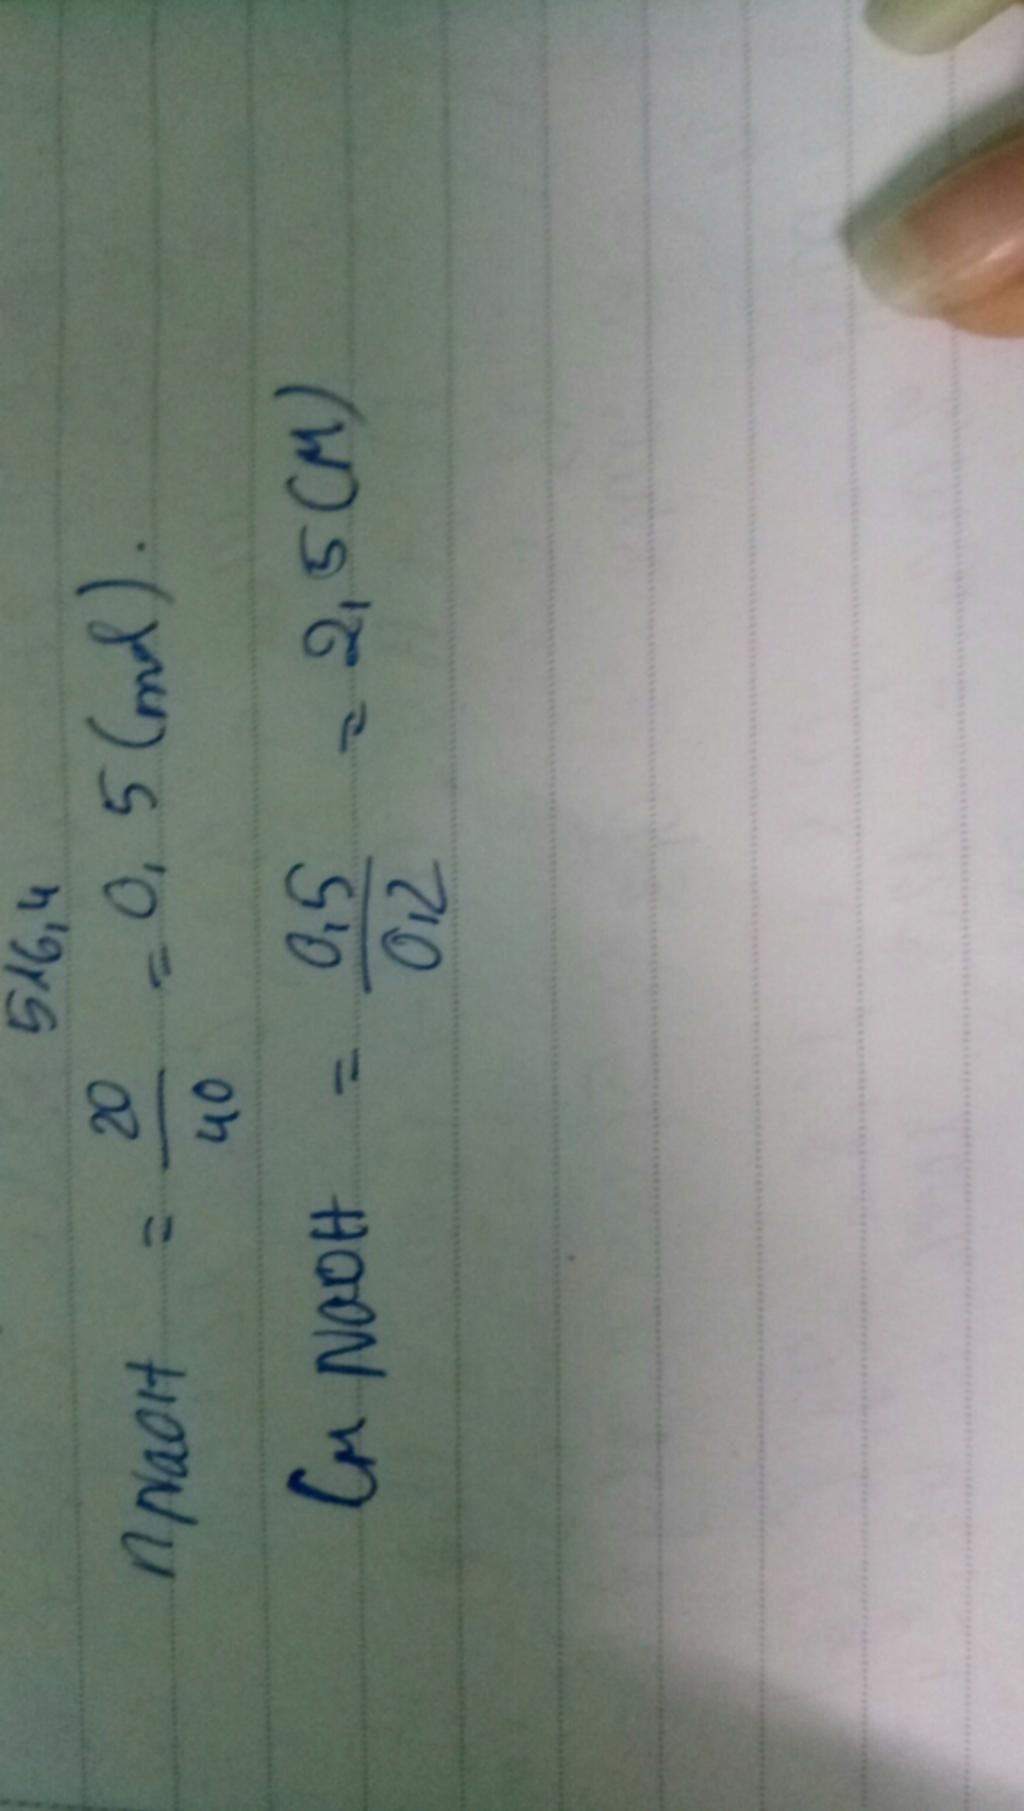 516,4
nNaOH = 20/40 = 0,5 (mol).
CM NaOH = 0,5/0,2 = 2,5 (M)